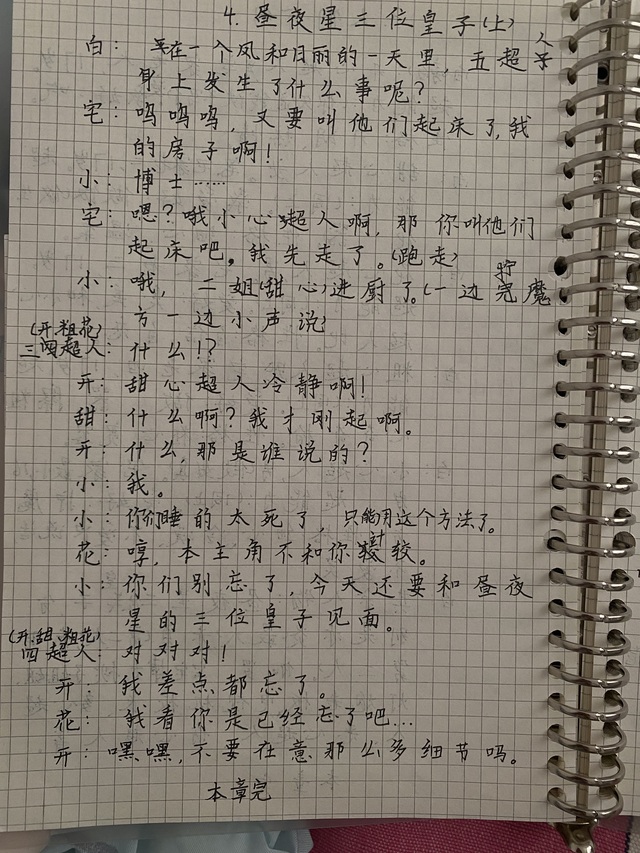 4. 昼夜星三位皇子(上)
白: 在一个风和日丽的一天里, 五超人
子身上发生了什么事呢?
宅: 呜呜呜, 又要叫他们起床了, 我
的房子啊!
小: 博士……
宅: 嗯? 哦小心超人啊, 那你叫他们
起床吧。我先走了。(跑走)
小: 哦, 二姐(甜心)进厨了。(一边拧魔
方一边小声说)
(开.粗.花)
三四超人: 什么!?
开: 甜心超人冷静啊!
甜: 什么啊? 我才刚起啊。
开: 什么, 那是谁说的?
小: 我。
小: 你们睡的太死了, 只能用这个方法了。
花: 哼, 本主角不和你计较。
小: 你们别忘了, 今天还要和昼夜
星的三位皇子见面。
(开.甜.粗.花)
四超人: 对对对!
开: 我差点都忘了。
花: 我看你是已经忘了吧...
开: 嘿嘿, 不要在意那么多细节吗。
本章完